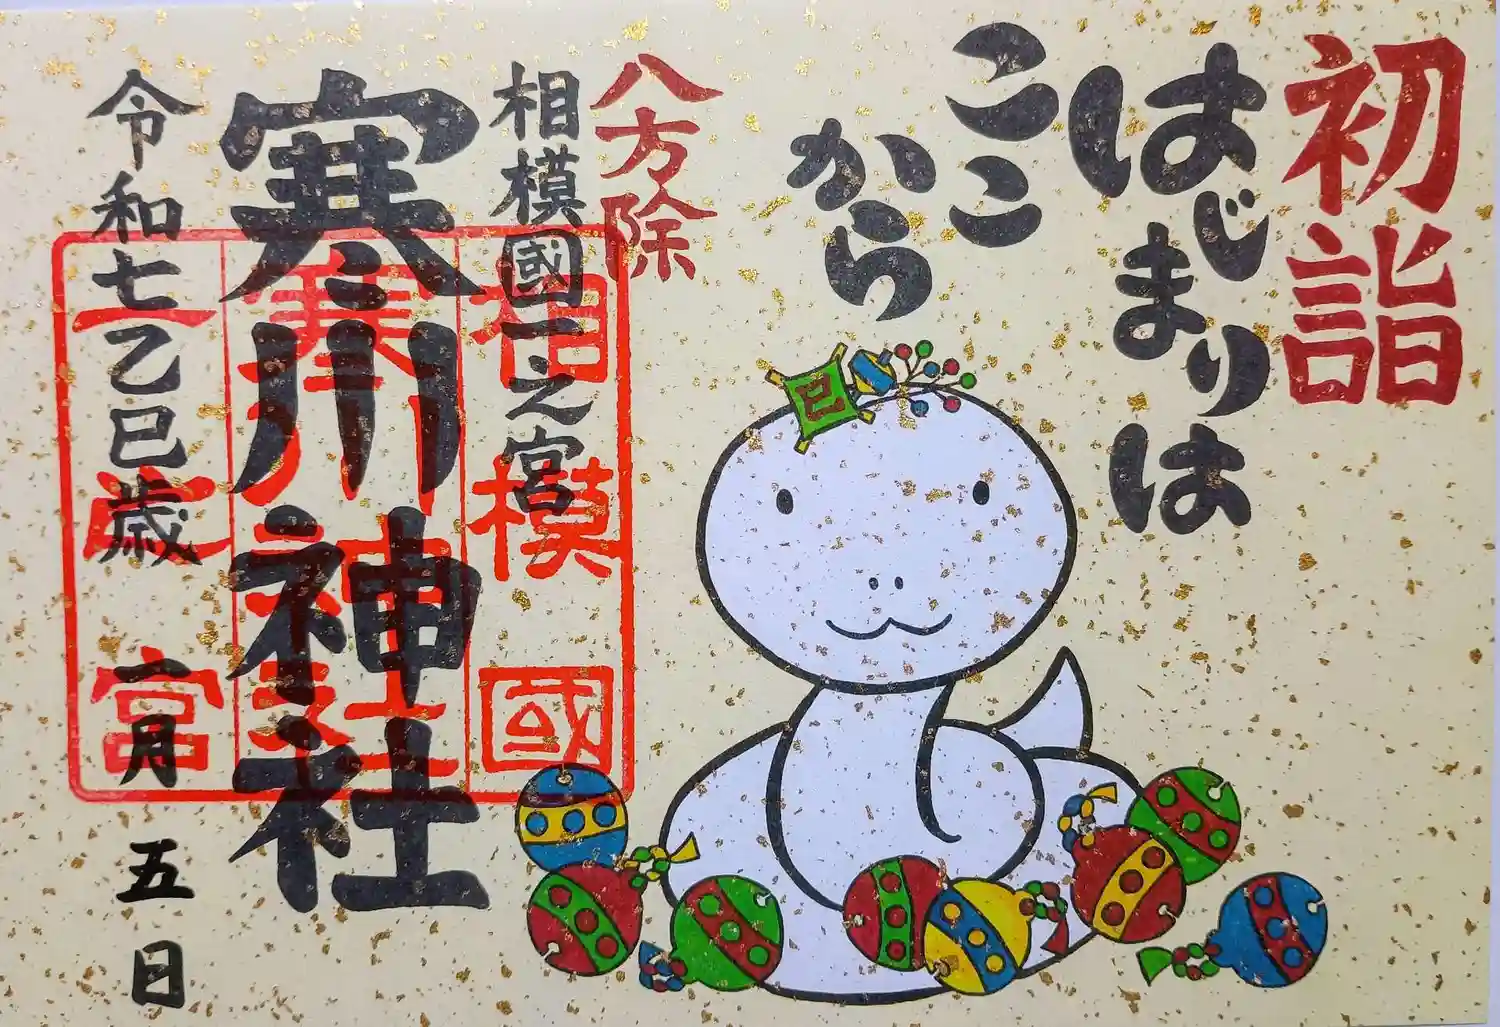 初詣
はじまりは
ここ
から
巳
八方除
相模國一之宮
寒川神社
令和七乙巳歳 一月五日
相模國
寒川神社
一之宮